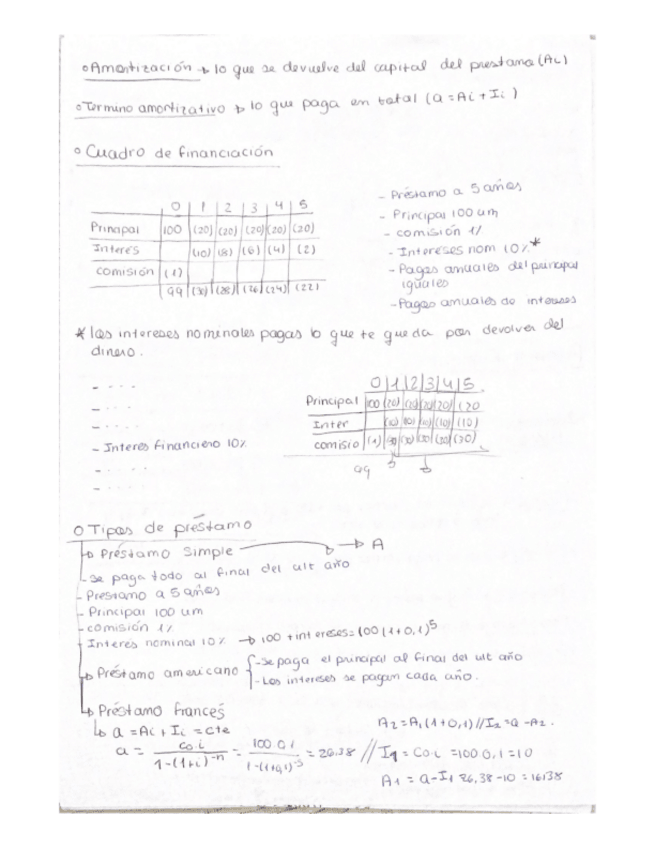 o Amortización → lo que se devuelve del capital del prestamo (Ai)
o Termino amortizativo → lo que paga en total (a = Ai + Ii)
o Cuadro de financiación
0 | 1 | 2 | 3 | 4 | 5
Principal 100 (20) (20) (20) (20) (20)
Interés (10) (8) (6) (4) (2)
comisión (1)
99 (30) (28) (26) (24) (22)
- Préstamo a 5 años
- Principal 100 um
- comisión 1%
- Intereses nom 10% *
- Pagos anuales del principal
iguales
- Pagos anuales de intereses
* los intereses nominales pagas lo que te queda por devolver del
dinero.
- . . . .
- . . .
- . . . .
- Interés financiero 10%
- . . . .
- . . . .
0 | 1 | 2 | 3 | 4 | 5
Principal 100 (20) (20) (20) (20) (20
Inter (10) (10) (10) (10) (10)
comisio (1) (30) (30) (30) (30) (30)
99
o Tipos de préstamo
↳ Préstamo simple → A
- se paga todo al final del ult año
- Prestamo a 5 años
- Principal 100 um
- comisión 1%
- Interés nominal 10% → 100 + intereses = 100 (1+0,1)^5
↳ Préstamo americano { - se paga el principal al final del ult año
- Los intereses se pagan cada año.
↳ Préstamo francés
↳ a = Ai + Ii = cte
a = co·i / 1-(1+i)^-n = 100·0,1 / 1-(1+0,1)^-5 = 26.38 // I1 = Co·i = 100·0,1 = 10
A1 = a - I1 26,38 - 10 = 16,38
A2 = A1 (1+0,1) // I2 = a - A2.